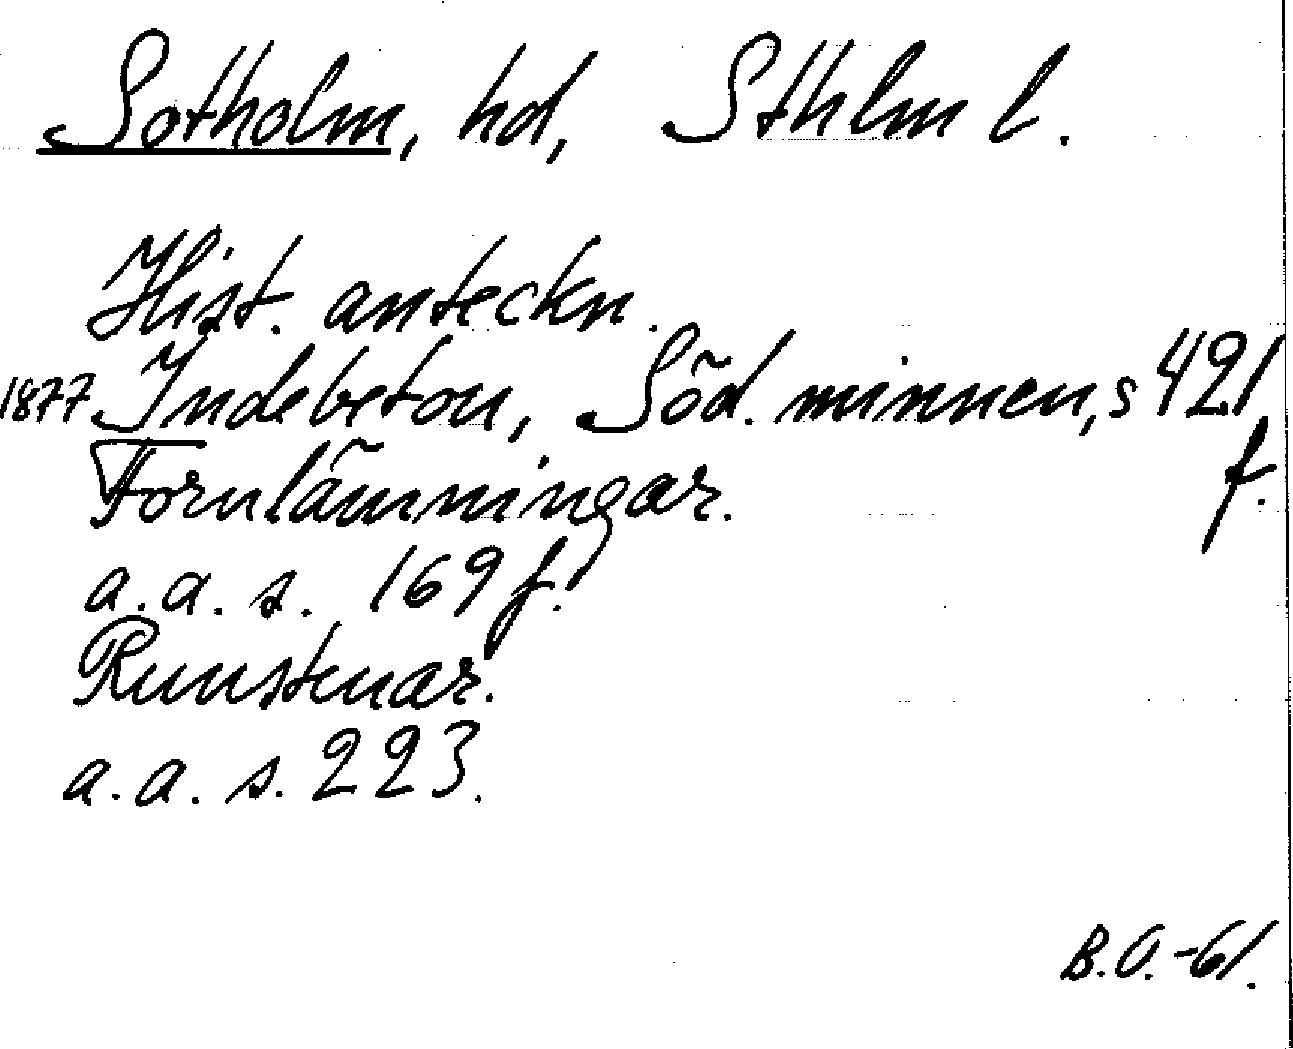 Sotholm, hd, Sthlm l.
Hist. anteckn.
1877 Indebetou, Söd. minnen, s 421 f.
Fornlämningar.
a.a. s. 169 f.
Runstenar.
a.a. s. 223.
B.O.-61.